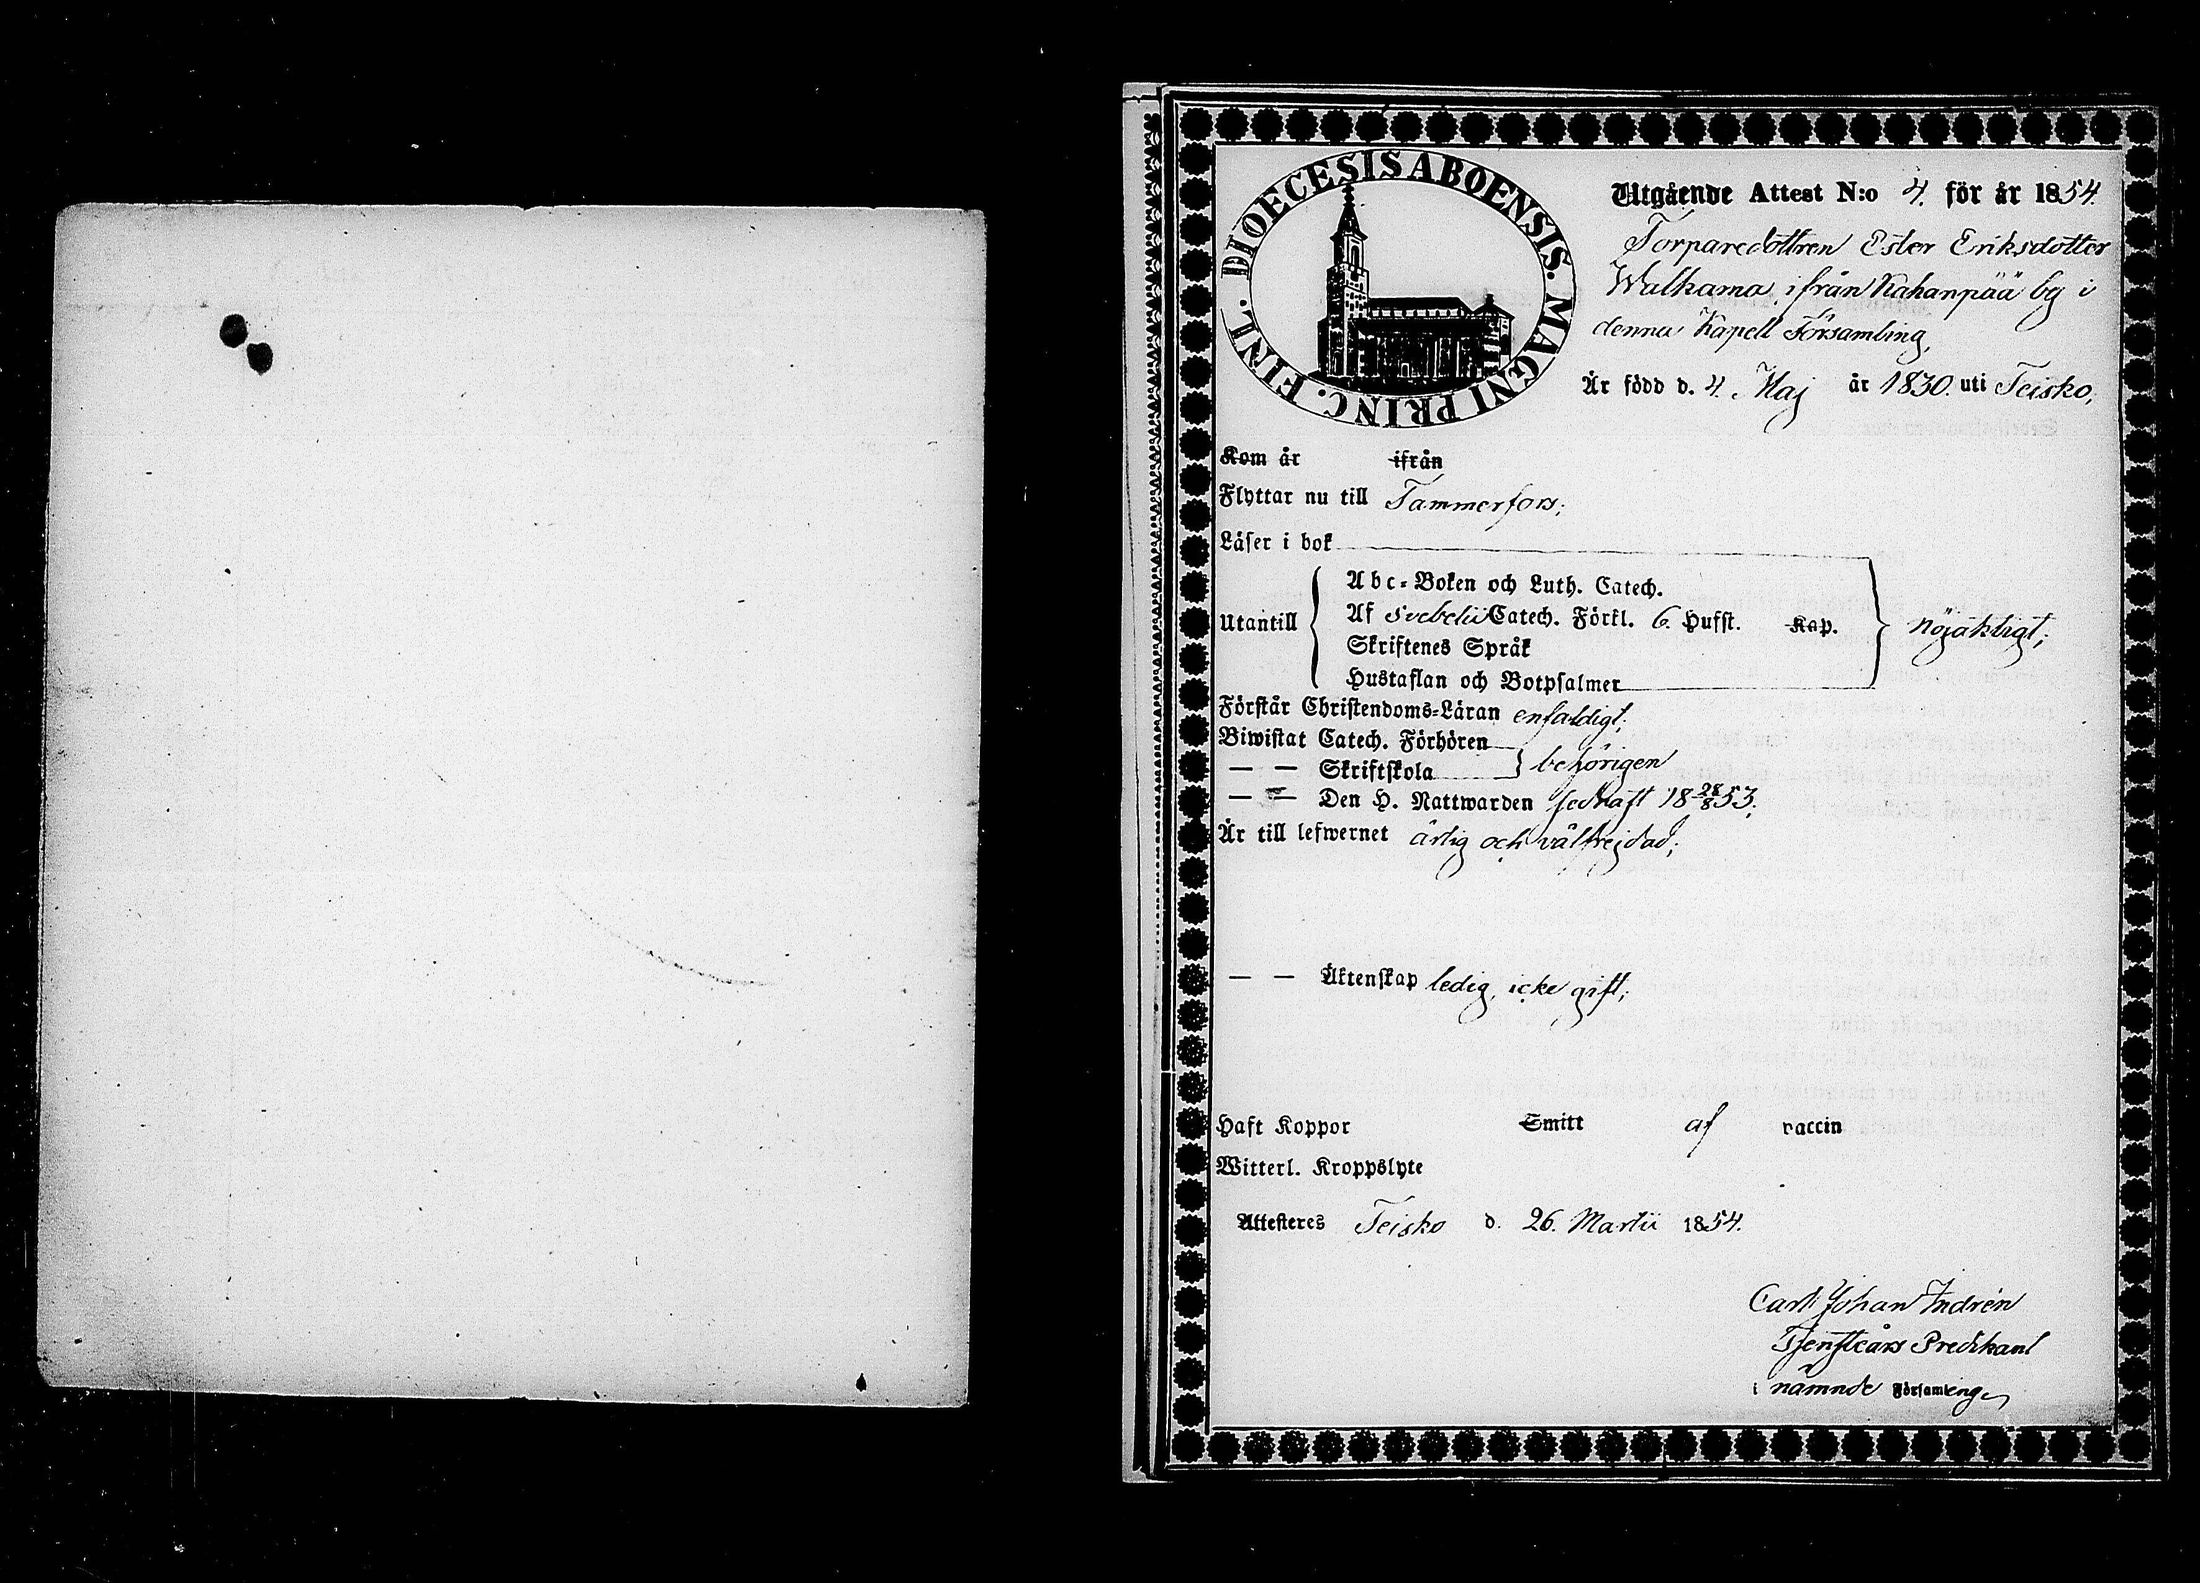 DIOECESIS ABOENSIS. MAGNI PRINC. FINL.
Utgående Attest N:o 4. för år 1854.
Torparedottren Ester Eriksdotter
Walkama, ifrån Kahanpää by i
denna Kapell Församling,
Är född d. 4. Maj år 1830. uti Teisko;
Kom år ifrån
Flyttar nu till Tammerfors;
Läser i bok
Abc-Boken och Luth. Catech.
Utantill Af Svebelii Catech. Förkl. 6. Hufst. Kap. nöjaktigt;
Skriftenes Språk
Hustaflan och Botpsalmer
Förstår Christendoms-Läran enfaldigt;
Biwistat Catech. Förhören
— — Skriftskola behörigen
— — Den H. Nattwarden sednast 18 28/8 53;
Är till lefwernet ärlig och välfrejdad;
— — Äktenskap ledig, icke gift;
Haft Koppor Smitt af vaccin
Witterl. Kroppslyte
Attesteras Teisko d. 26. Martii 1854.
Carl Johan Indrén
Tjensteårs Predikant
i nämnde Församling